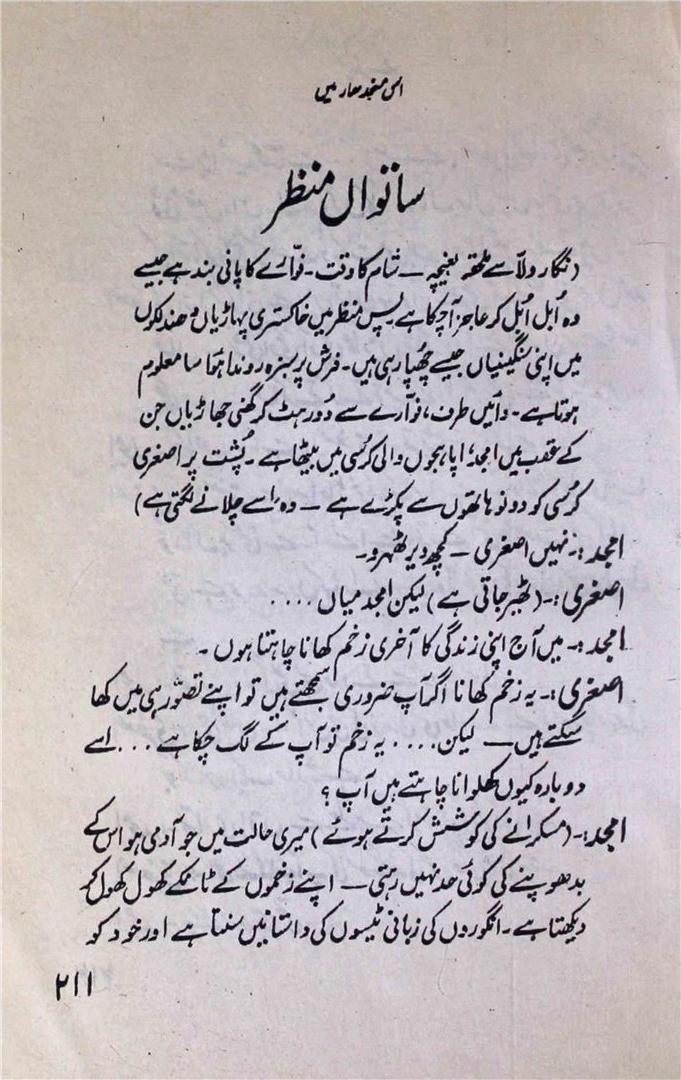 اس منجدھار میں
ساتواں منظر
(نگار ولاّ سے ملحقہ بغیچہ — شام کا وقت۔ فوّارے کا پانی بند ہے جیسے
وہ اُبل اُبل کر عاجز آ چکا ہے پس منظر میں خاکستری پہاڑیاں دھندلکوں
میں اپنی سنگینیاں جیسے چھُپا رہی ہیں۔ فرش پر سبزہ روندا ہوٗا سا معلوم
ہوتا ہے۔ دائیں طرف، فوّارے سے دُور ہٹ کر گھنی جھاڑیاں جن
کے عقب میں امجد، اپاہجوں والی کُرسی میں بیٹھا ہے۔ پُشت پر اصغری
کُرسی کو دونو ہاتھوں سے پکڑے ہے — وہ اسے چلانے لگتی ہے)
امجد :۔ نہیں اصغری — کچھ دیر ٹھہرو۔
اصغری :۔ (ٹھیر جاتی ہے) لیکن امجد میاں ....
امجد :۔ میں آج اپنی زندگی کا آخری زخم کھانا چاہتا ہوں ۔
اصغری :۔ یہ زخم کھانا اگر آپ ضروری سمجھتے ہیں تو اپنے تصوّر ہی میں کھا
سکتے ہیں — لیکن.... یہ زخم تو آپ کے لگ چکا ہے ... اسے
دوبارہ کیوں کھلوانا چاہتے ہیں آپ ؟
امجد :۔ (مسکرانے کی کوشش کرتے ہوئے) میری حالت میں جو آدمی ہو اس کے
بدھوپنے کی کوئی حد نہیں رہتی — اپنے زخموں کے ٹانکے کھول کھول کر
دیکھتا ہے۔ انگوروں کی زبانی ٹیسوں کی داستانیں سنتا ہے اور خود کو
۲۱۱